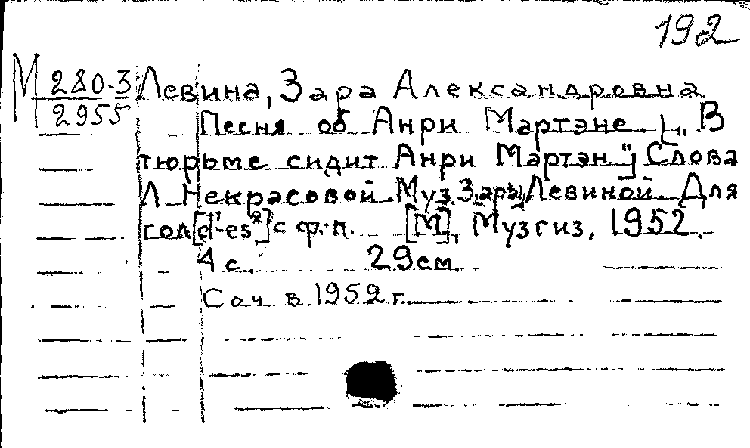 192
М 280-3 Левина, Зара Александровна
2955
Песня об Анри Мартэне [„В
тюрьме сидит Анри Мартэн"] Слова
Л. Некрасовой Муз. Зары Левиной. Для
гол. [d¹-es²] с ф.-п. [М], Музгиз, 1952.
4 с. 29 см
Соч. в 1952 г.